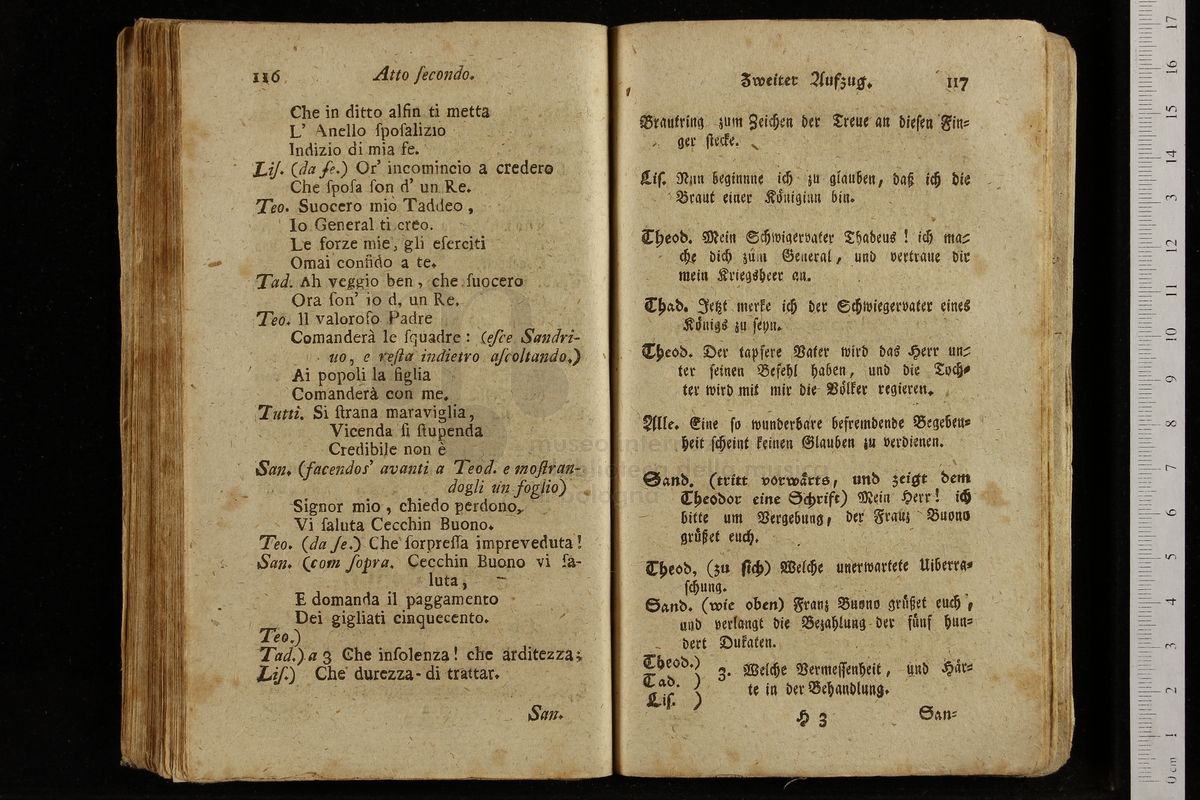 116 Atto ſecondo.
Che in ditto alfin ti metta
L' Anello ſpoſalizio
Indizio di mia fe.
Liſ. (da ſe.) Or' incomincio a credero
Che ſpoſa ſon d' un Re.
Teo. Suocero mio Taddeo ,
Io General ti creo.
Le forze mie, gli eſerciti
Omai confido a te.
Tad. Ah veggio ben , che ſuocero
Ora ſon' io d, un Re.
Teo. Il valoroſo Padre
Comanderà le ſquadre : (eſce Sandri-
no, e reſta indietro aſcoltando.)
Ai popoli la figlia
Comanderà con me.
Tutti. Si ſtrana maraviglia,
Vicenda ſi ſtupenda
Credibile non è
San. (facendoſ' avanti a Teod. e moſtran-
dogli un foglio)
Signor mio , chiedo perdono,
Vi ſaluta Cecchin Buono.
Teo. (da ſe.) Che ſorpreſſa impreveduta !
San. (com ſopra. Cecchin Buono vi ſa-
luta,
E domanda il paggamento
Dei gigliati cinquecento.
Teo.)
Tad.) a 3 Che inſolenza ! che arditezza;
Liſ.) Che durezza di trattar.
San.
Zweiter Aufzug. 117
Brautring zum Zeichen der Treue an dieſen Fin-
ger ſtecke.
Liſ. Nun beginnne ich zu glauben, daß ich die
Braut einer Königinn bin.
Theod. Mein Schwigervater Thadeus ! ich ma-
che dich zum General, und vertraue dir
mein Kriegsheer an.
Thad. Jetzt merke ich der Schwiegervater eines
Königs zu ſeyn.
Theod. Der tapfere Vater wird das Herr un-
ter ſeinen Befehl haben, und die Toch-
ter wird mit mir die Völker regieren.
Alle. Eine ſo wunderbare befremdende Begeben-
heit ſcheint keinen Glauben zu verdienen.
Sand. (tritt vorwärts, und zeigt dem
Theodor eine Schrift) Mein Herr! ich
bitte um Vergebung, der Franz Buono
grüßet euch.
Theod, (zu ſich) Welche unerwartete Uiberra-
ſchung.
Sand. (wie oben) Franz Buono grüßet euch ,
und verlangt die Bezahlung der fünf hun-
dert Dukaten.
Theod.)
Tad. ) 3. Welche Vermeſſenheit, und Här-
Liſ. ) te in der Behandlung.
H 3 San-
museo internazionale
biblioteca della musica
bologna